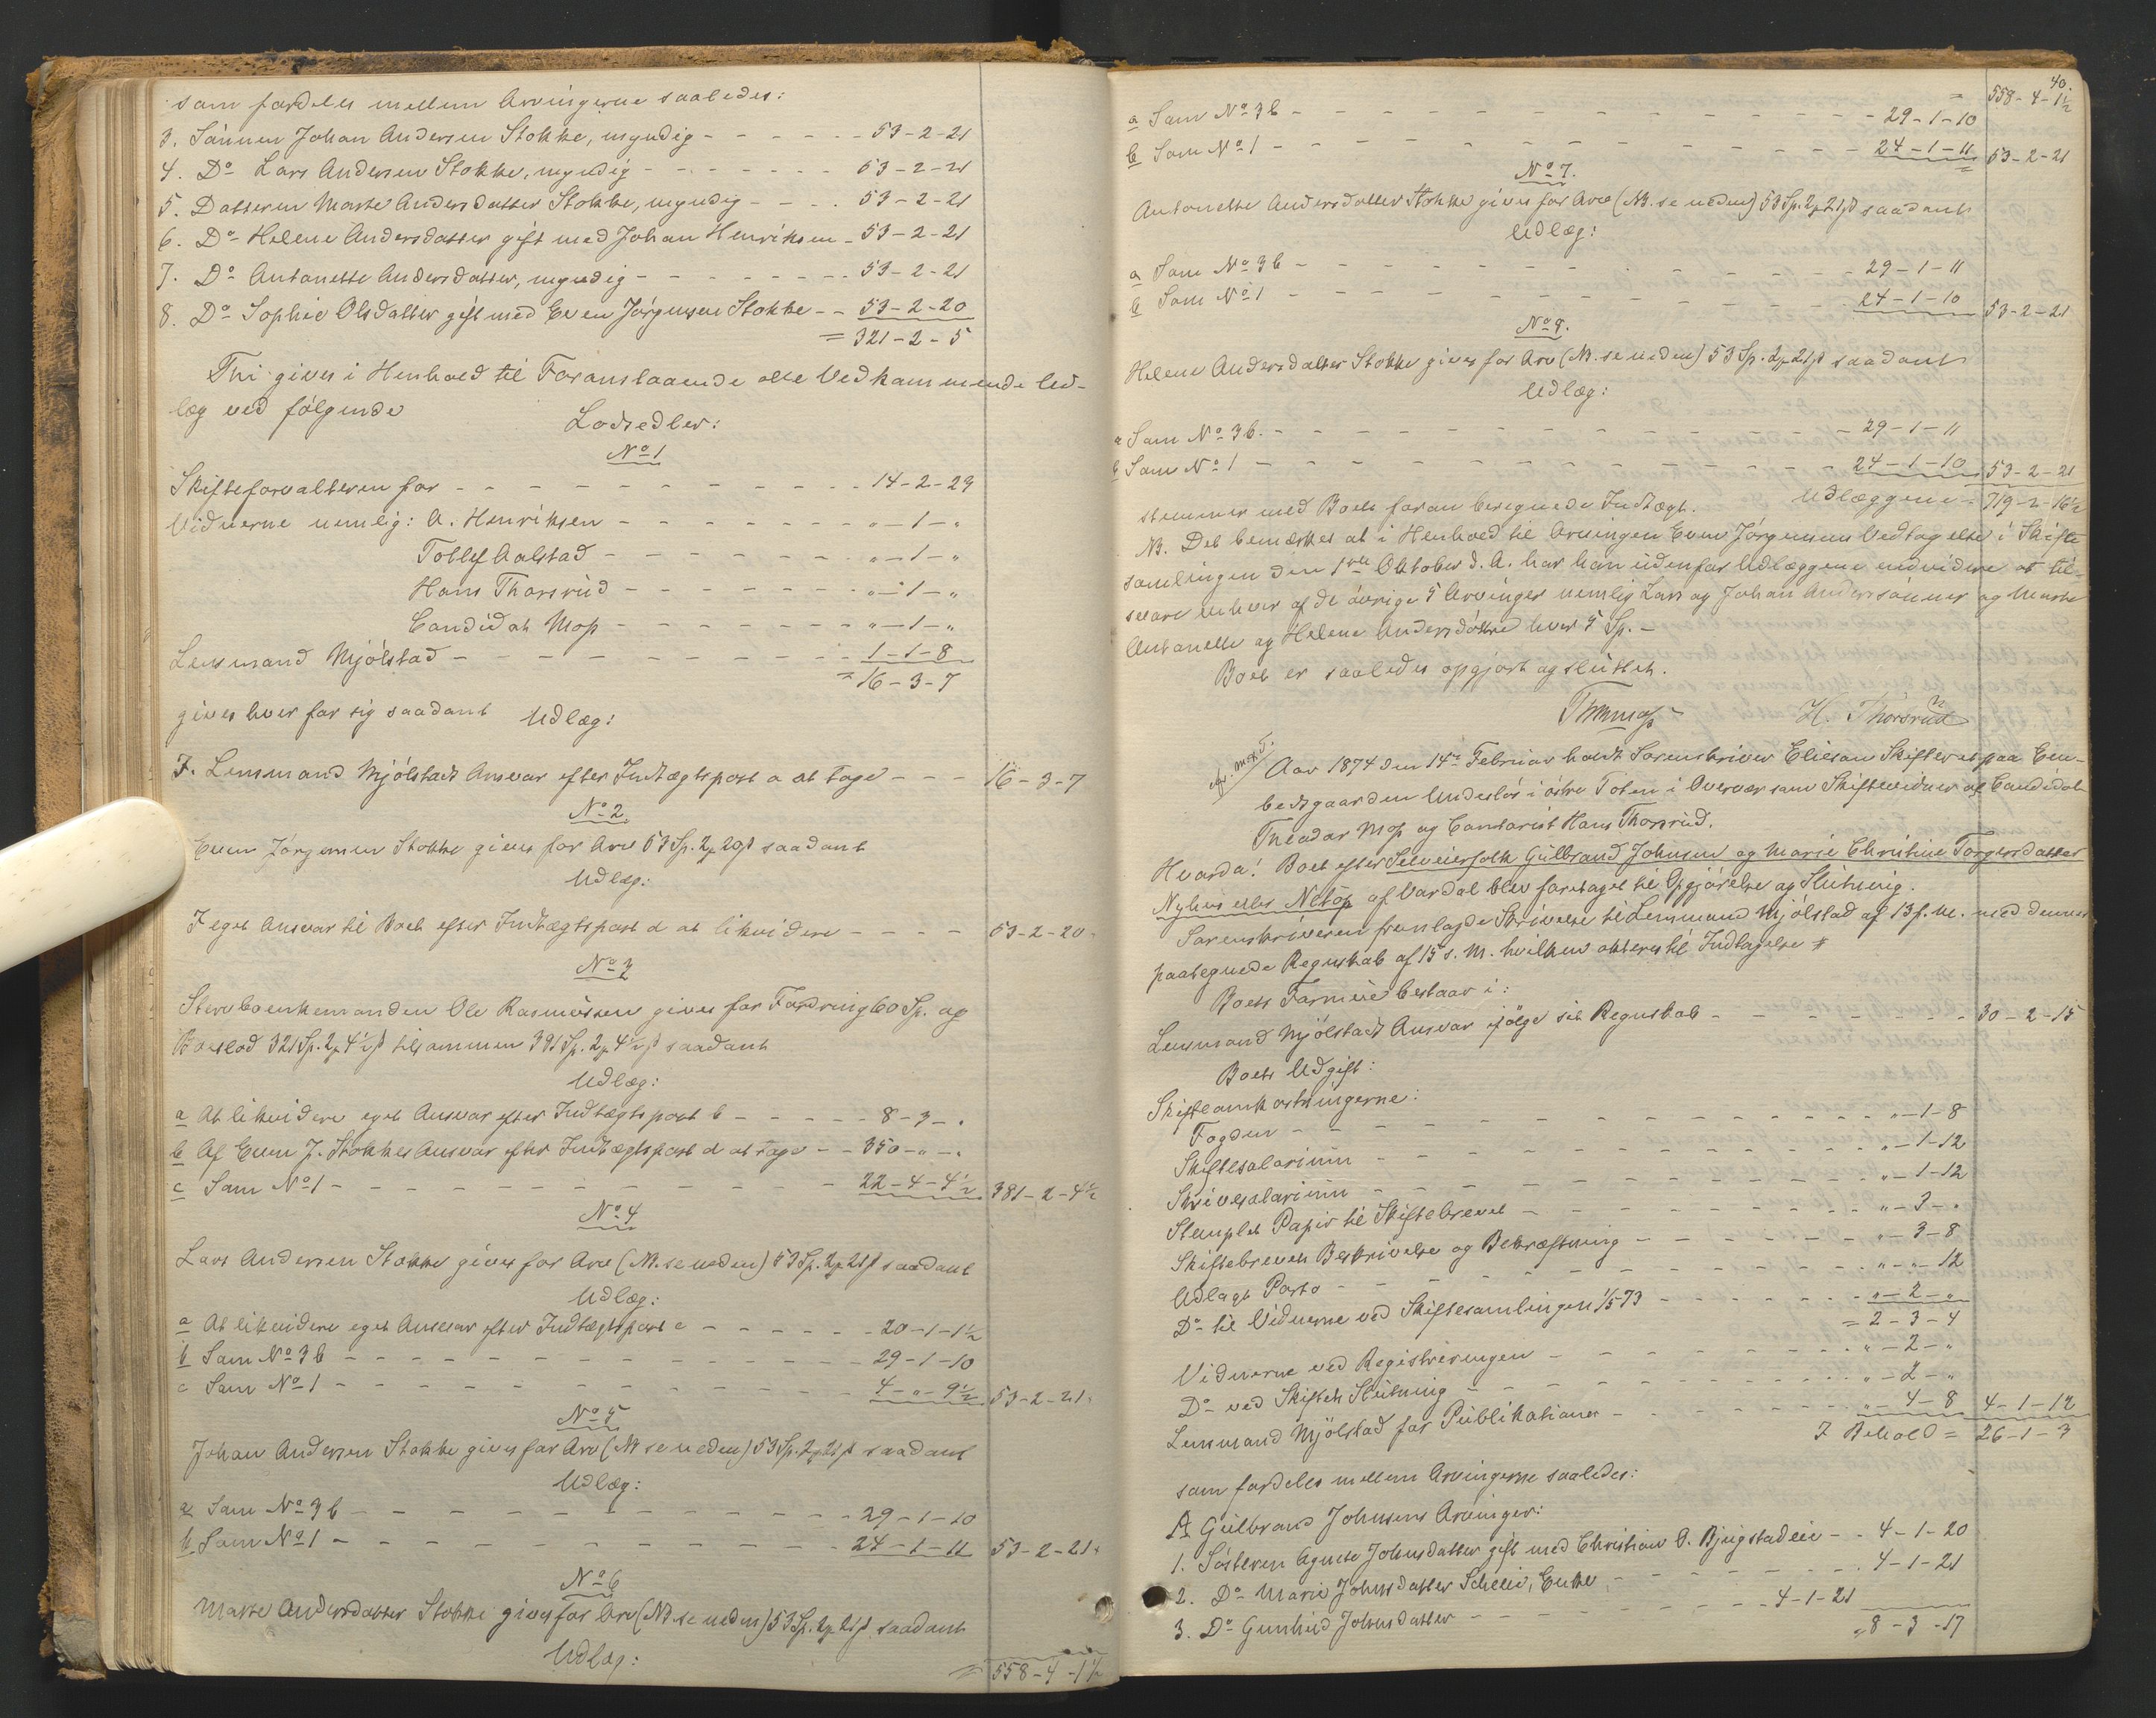 som fordeles mellem Arvingerne saaledes:
3. Sønnen Johan Andersen Stokke, myndig - - - - - - 53-2-21
4. Do Lars Andersen Stokke, myndig - - - - - - - 53-2-21
5. Datteren Marte Andersdatter Stokke, myndig - - - . 53-2-21
6. Do Helene Andersdatter gift med Johan Henriksen - 53-2-21
7. Do Antonette Andersdatter, myndig - - - - - - - - 53-2-21
8. Do Sophie Olsdatter gift med Even Jørgensen Stokke - - 53-2-20
= 321-2-5
Thi gives i Henhold til Foranstaaende alle Vedkommende Ud-
læg ved følgende
Lodsedler:
No 1
Skifteforvalteren for - - - - - - - - - - - 14-2-29
Vidnerne nemlig: A. Henriksen - - - - - - - „-1-„
Tollef Aalstad - - - - - - - „-1-„
Hans Thorsrud - - - - - - - „-1-„
Candidat Mop - - - - - - - „-1-„
Lensmand Mjölstad - - - - - - - - - - - 1-1-8
= 16-3-7
gives hver for sig saadant Udlæg:
I. Lensmand Mjölstads Ansvar efter Indtægtspost a at tage - - - 16-3-7
No 2
Even Jörgensen Stokke gives for Arv 53 Sp. 2 20 saadant
Udlæg:
I eget Ansvar til Boet efter Indtægtspost d at likvidere - - - - 53-2-20
No 3
Sterboenkemanden Ole Rasmussen gives for Fordring 60 Sp. og
Boeslod 321 Sp. 2 4½ tilsammen 381 Sp. 2 4½ saadant
Udlæg:
a At likvidere eget Ansvar efter Indtægtspost b - - - - - 8-3-.
b Af Even J. Stokkes Ansvar efter Indtægtspost d at tage - - 350-„-„
c Som No 1 - - - - - - - - - - - 22-4-4½ 381-2-4½
No 4
Lars Andersen Stokke gives for Arv (NB. se neden) 53 Sp. 2 21 saadant
Udlæg:
a At likvidere eget Ansvar efter Indtægtspost c - - - - - 20-1-1½
b Som No 3 b - - - - - - - - - - - - 29-1-10
c Som No 1 - - - - - - - - - - - - 4-„-9½ 53-2-21
No 5
Johan Andersen Stokke gives for Arv (NB se neden) 53 Sp. 2 21 saadant
Udlæg:
a Som No 3 b - - - - - - - - - - 29-1-10
b Som No 1 - - - - - - - - - - - 24-1-11 53-2-21
No 6
Marte Andersdatter Stokke gives for Arv (NB. se neden) 53 Sp. 2 21 saadant
Udlæg:
= 558-4-1½
40.
= 558-4-1½
a Som No 3 b - - - - - - - - - - - 29-1-10
b Som No 1 - - - - - - - - - - - 24-1-11 53-2-21
No 7.
Antonette Andersdatter Stokke gives for Arv (NB. se neden) 53 Sp. 2 21 saadant
Udlæg:
a Som No 3 b - - - - - - - - - - - 29-1-11
b Som No 1 - - - - - - - - - - - 24-1-10 53-2-21
No 8.
Helene Andersdatter Stokke gives for Arv (NB. se neden) 53 Sp. 2 21 saadant
Udlæg:
a Som No 3 b. - - - - - - - - - - - 29-1-11
b Som No 1 - - - - - - - - - - - 24-1-10 53-2-21
stemmer med Boets foran beregnede Indtægt. Udlæggene = 719-2-16½
NB. Det bemærkes at i Henhold til Arvingen Even Jørgensens Vedtagelse i Skifte
samlingen den 1ste Oktober d. A. har han udenfor Udlæggene endvidere at til-
svare enhver af de øvrige 5 Arvinger nemlig Lars og Johan Anderssønner og Marte
Antonette og Helene Andersdøttre hver 5 Sp. -
Boet er saaledes opgjort og sluttet.
H. Thorsrud
Aar 1874 den 14de Februar holdt Sorenskriver Elieson Skifteret paa Em-
bedsgaarden Undeslös i östre Toten i Overvær som Skiftevidner af Candidat
Theodor Mop og Contorist Hans Thorsrud.
Hvorda: Boet efter Selveierfolk Gulbrand Johnsen og Marie Christine Torgersdatter
Nyhus eller Netop af Vardal blev foretaget til Opgjørelse og Slutning.
Sorenskriveren fremlagde Skrivelse til Lensmand Mjölstad af 13 f. M. med dennes
paategnede Regnskab af 15 s. M. hvilken akteres til Indtagelse #
Boets Formue bestaar i:
Lensmand Mjölstads Ansvar ifölge sit Regnskab - - - - - - - 30-2-15
Boets Udgift:
Skifteomkostningerne:
Fogden - - - - - - - - - - - - „-1-8
Skiftesalarium - - - - - - - - - - - „-1-12
Skriversalarium - - - - - - - - - - - „-1-12
Stemplet Papir til Skiftebrevet - - - - - - - - „-3-„
Skiftebrevets Beskrivelse og Bekræftning - - - - - - „-3-8
Udlagt Porto - - - - - - - - - - - „-„-12
Do til Vidnerne ved Skiftesamlingen 1/5 73 - - - - - - „-2-„
= 2-3-4
Vidnerne ved Registreringen - - - - - - - - „-2-„
Do ved Skiftets Slutning - - - - - - - - - „-2-„
Lensmand Mjölstad for Publikationer - - - - - - „-4-8 4-1-12
I Behold = 26-1-3
som fordeles mellem Arvingerne saaledes:
A Gulbrand Johnsens Arvinger:
1. Søsteren Agnete Johnsdatter gift med Christian O. Bjugstadeie - - 4-1-20
2. Do Marie Johnsdatter Scheie, Enke - - - - - - - 4-1-21
3. Do Gunhild Johnsdatter - - - - - - 4-1-21
8-3-17